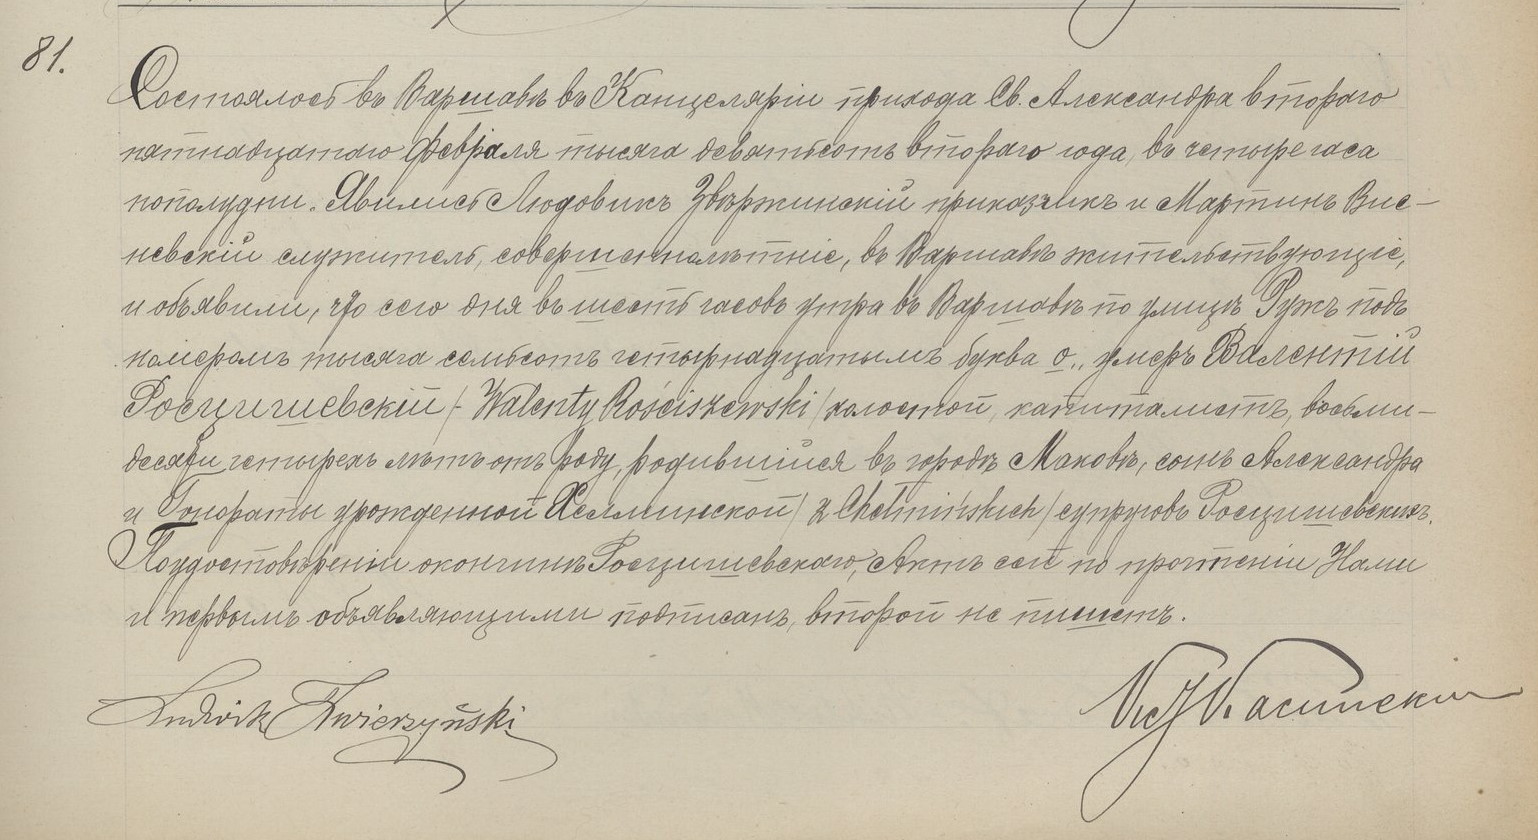 81.
Состоялось въ Варшавѣ въ Канцеляріи прихода Св. Александра второго
пятнадцатаго Февраля тысяча девятьсотъ второго года, въ четыре часа
пополудни. Явились Людовикъ Звѣржинскій приказчикъ и Мартинъ Вис-
невскій служитель, совершеннолѣтніе, въ Варшавѣ жительствующіе,
и объявили, что сего дня въ шесть часовъ утра въ Варшавѣ по улицѣ Ружѣ подъ
номеромъ тысяча семьсотъ четырнадцатымъ буква о., умеръ Валентій
Росцишевскій /- Walenty Rościszewski / холостой, капиталистъ, восьми-
десяти четырехъ лѣтъ отъ роду, родившійся въ городѣ Маковѣ, сынъ Александра
и Гонораты урожденной Хелминской / z Chełmińskich / супруговъ Росцишевскихъ.
По удостовѣреніи о кончинѣ Росцишевскаго, Актъ сей по прочтеніи Нами
и первымъ объявляющими подписанъ, второй не пишетъ.
Ludwik Zwierzyński